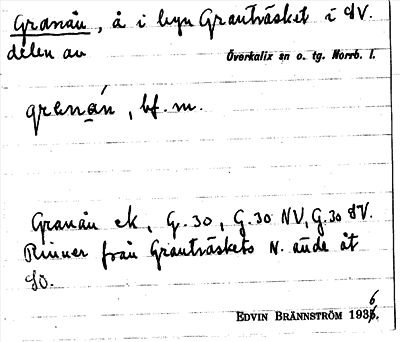 Granån, å i byn Grauträsket i SV.
delen av Överkalix sn o. tg. Norrb. l.
grenán, bf. m.
Granån ek, G.30, G.30 NV, G.30 SV.
Rinner från Grauträskets N. ände åt
SO.
EDVIN BRÄNNSTRÖM 1936.